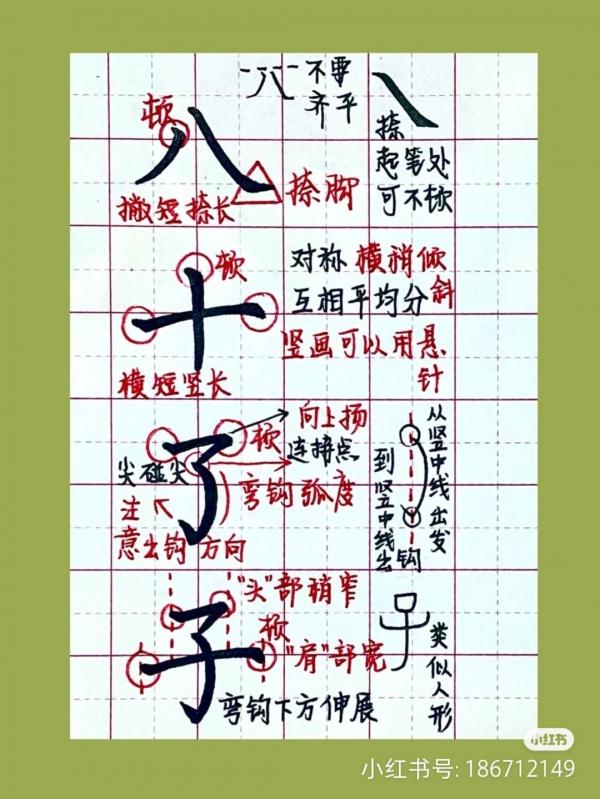 不要
齐平
顿
八
捺脚
撇短捺长
捺
起笔处
可不顿
顿
十
对称 横稍倾斜
互相平均分
竖画可以用悬针
横短竖长
了
顿
向上扬
连接点
尖碰尖
弯钩弧度
注意出钩方向
从竖中线出发
到竖中线出钩
子
"头"部稍窄
顿
"肩"部宽
弯钩下方伸展
类似人形
小红书
小红书号: 186712149